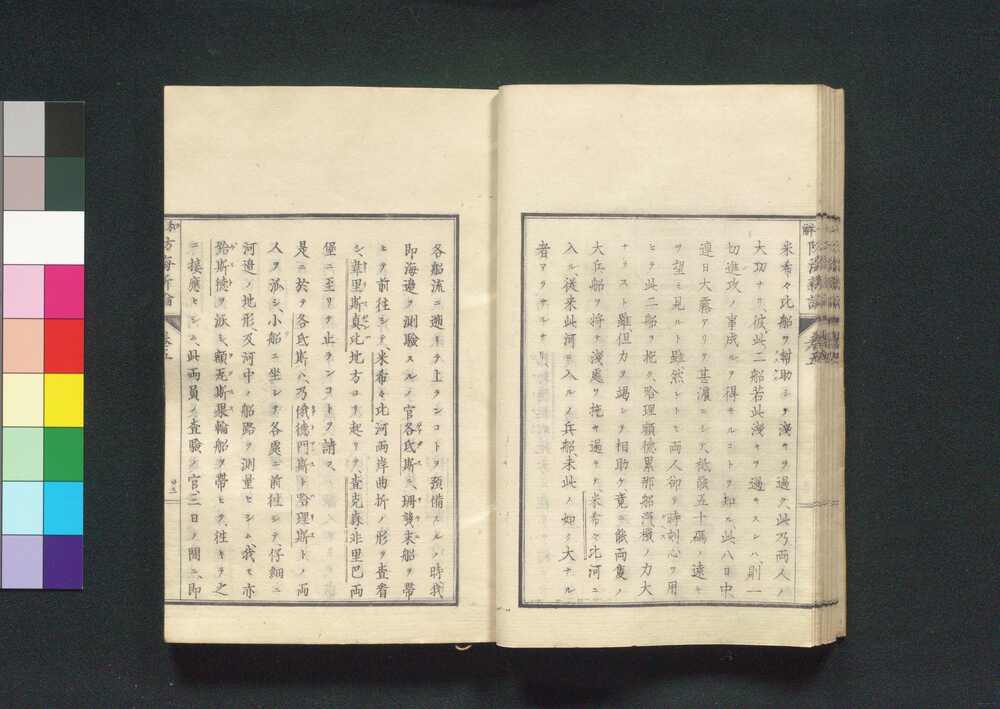 米希々比船ヲ幇助シテ淺キヲ過ク、此乃兩人ノ
大功ナリ、彼、此二船若此淺キヲ過キスンハ、則一
切進攻ノ事成ルヲ得サルコトヲ知ル、此八日中
連日大霧アリテ甚濃ニシテ、祗發五十碼ノ遠キ
ヲ望ミ見ルト雖然シトモ兩人仰テ時刻心ヲ用
ヒテ此二船ヲ拖ク、哈理顧德累那船滊機ノ力大
ナラスト雖、但力ヲ竭シテ相助ケ竟ニ能兩隻ノ
大兵船ヲ將テ淺處ヲ拖キ過キテ米希々比河ニ
入ル、從來此河ニ入ルノ兵船、未此ノ如ク大ナル
者アラサルナリ
各船流ニ遡テ上ランコトヲ預備スルノ時我
即海邊ヲ測驗スルノ官各氐斯ニ珊龔來船ヲ帶
ヒテ前往シテ、米希々比河兩岸曲折ノ形ヲ查看
シ、韋里斯真比地方ヨリ起リテ、查克森非里巴兩
堡ニ至リテ止ランコトヲ請フ、
是ニ於テ各氐斯ハ、乃俄德門斯ト哈理斯トノ兩
人ヲ派シ、小船ニ坐シテ各處ニ前往シテ、仔細ニ
河邊ノ地形、及河中ノ船路ヲ測量セシム、我モ亦
勒斯德ヲ派シ、額瓦斯果輪船ヲ帶ヒテ、往キテ之
ニ接應セシム、此兩員ノ查驗ノ官、三日ノ間ニ、即
卷五